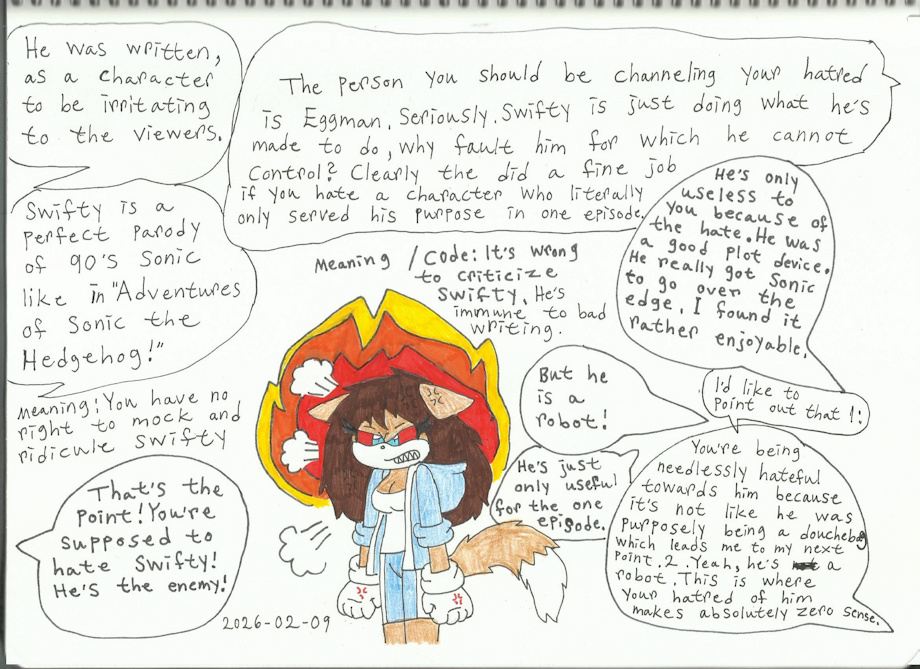 He was written,
as a character
to be irritating
to the viewers.
The person you should be channeling your hatred
is Eggman. Seriously. Swifty is just doing what he's
made to do, why fault him for which he cannot
control? Clearly the did a fine job
if you hate a character who literally
only served his purpose in one episode.
He's only
useless to
you because of
the hate. He was
a good plot device.
He really got Sonic
to go over the
edge. I found it
rather enjoyable.
Swifty is a
perfect parody
of 90's Sonic
like in "Adventures
of Sonic the
Hedgehog!"
Meaning / Code: It's wrong
to criticize
Swifty. He's
immune to bad
writing.
But he
is a
robot!
I'd like to
point out that 1:
Meaning: You have no
right to mock and
ridicule Swifty
He's just
only useful
for the one
episode.
You're being
needlessly hateful
towards him because
it's not like he was
purposely being a douchebag
which leads me to my next
point. 2. Yeah, he's a
robot. This is where
your hatred of him
makes absolutely zero sense.
That's the
point! You're
supposed to
hate Swifty!
He's the enemy!
2026-02-09